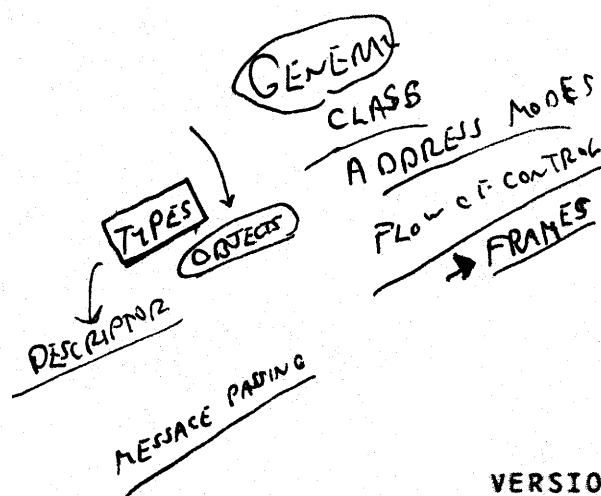 GENERAL
CLASS
ADDRESS MODES
FLOW OF CONTROL
→ FRAMES
TYPES
OBJECTS
DESCRIPTOR
MESSAGE PASSING
VERSIO